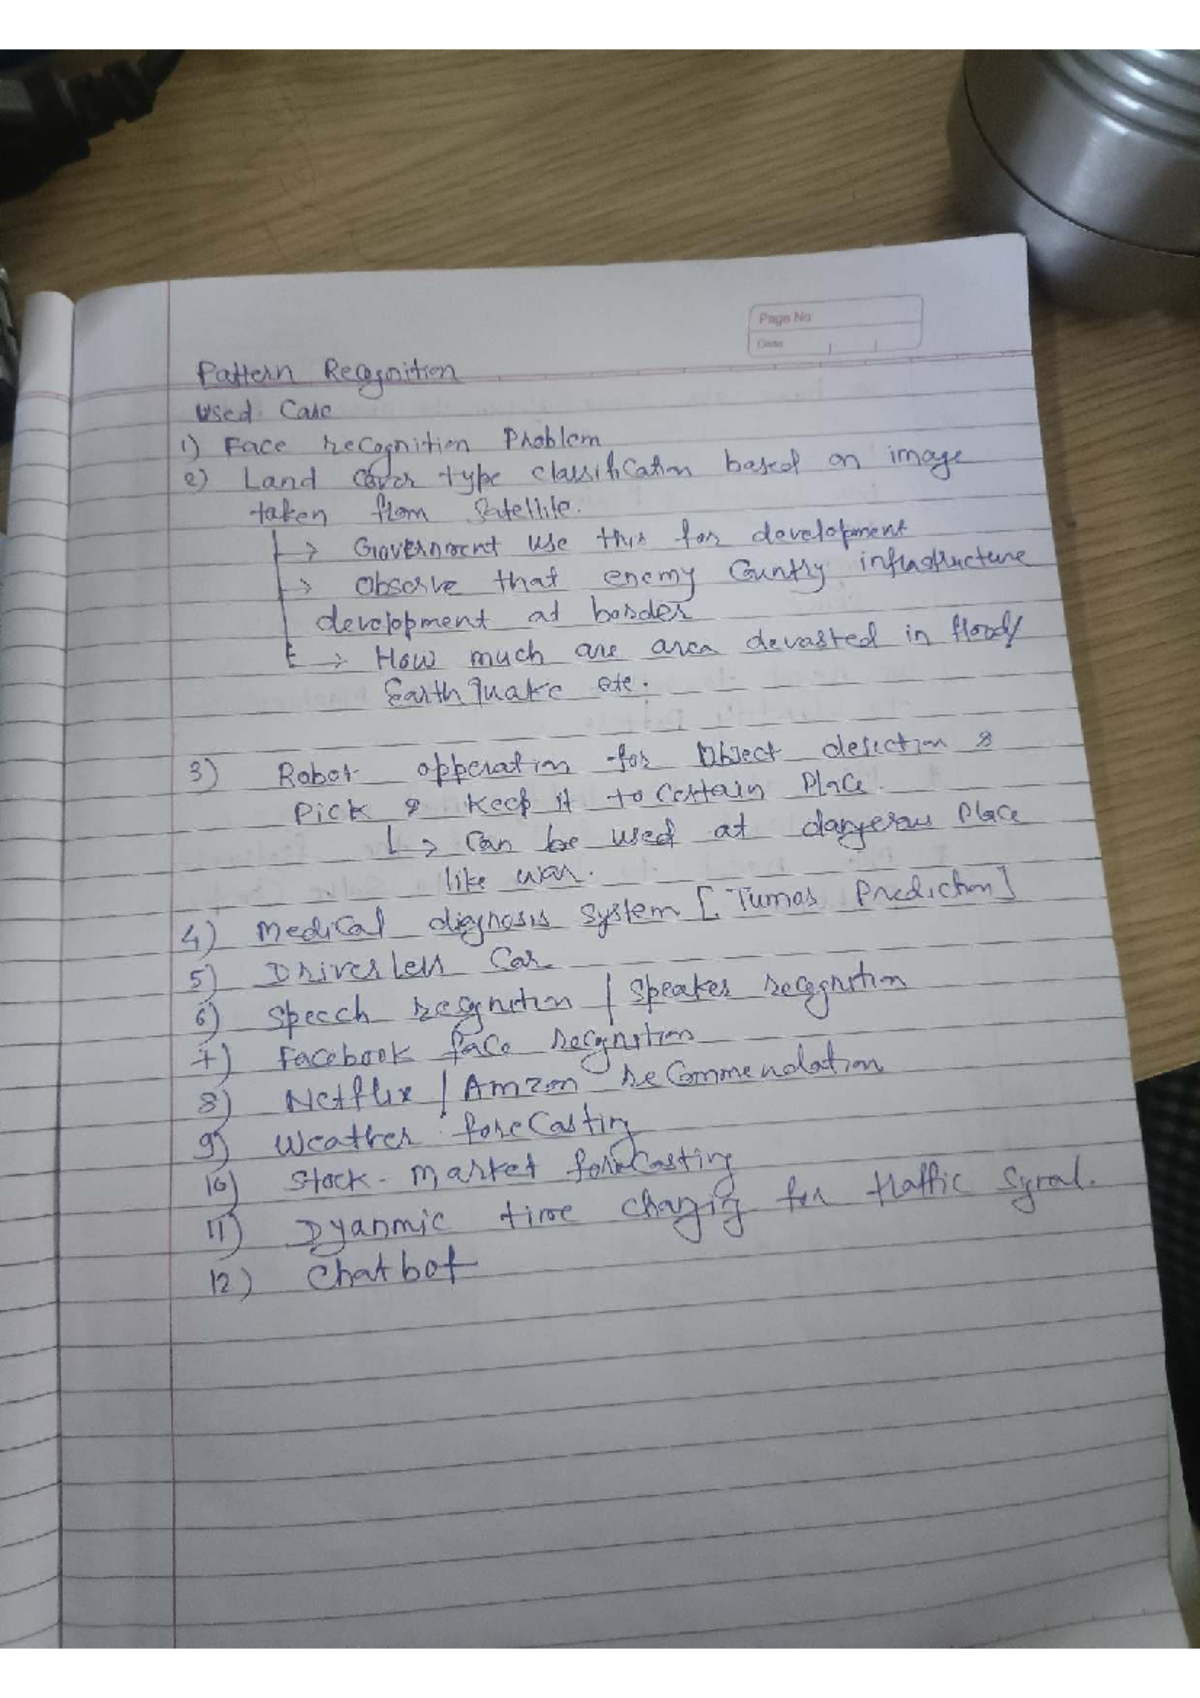 Page No
Date
Pattern Recognition
Used Case
1) Face recognition Problem
2) Land cover type classification based on image
taken from satellite.
→ Government use this for development
→ Observe that enemy Country infrastructure
development at border
→ How much are area devasted in flood/
Earthquake etc.
3) Robot opperation for Object detection &
Pick & Keep it to certain Place.
↳ Can be used at dangerous Place
like war.
4) Medical diagnosis system [Tumar Prediction]
5) Driverless Car
6) Speech recognition / Speaker recognition
7) Facebook face recognition
8) Netflix / Amzon recommendation
9) Weather forecasting
10) Stock-Market forecasting
11) Dyanmic time changig for traffic Signal.
12) Chatbot